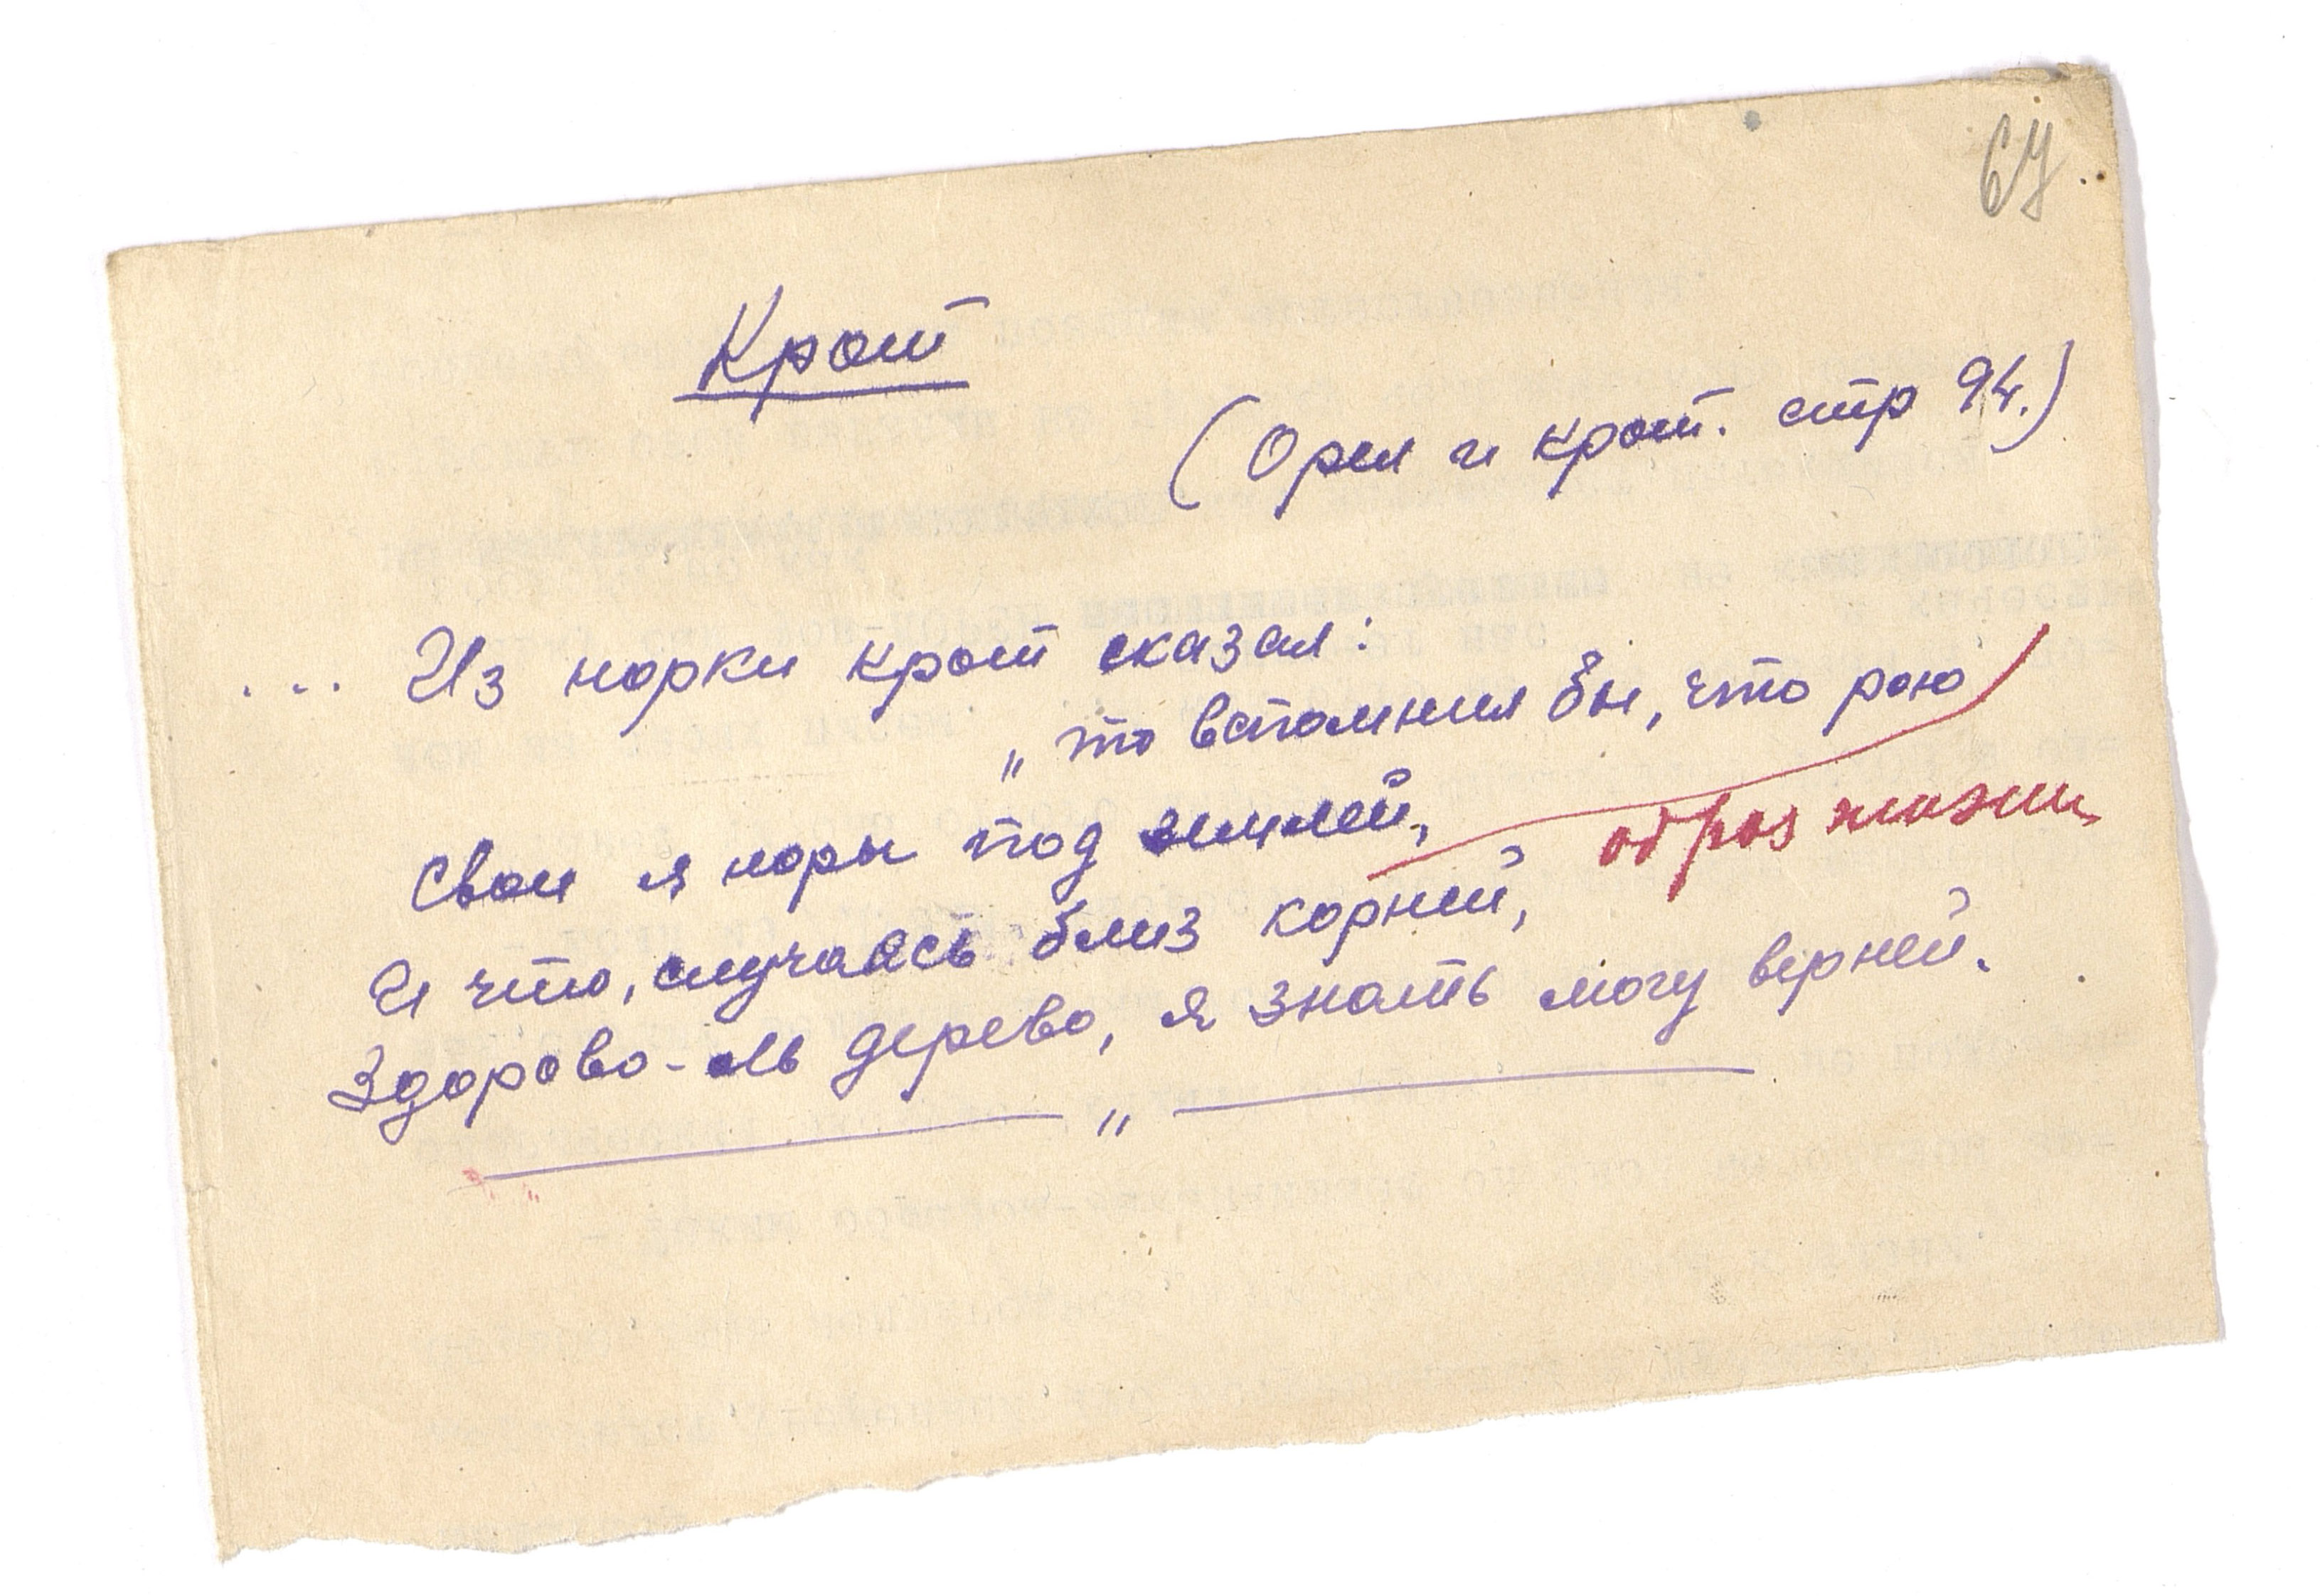 67
Крот
(Орел и крот. стр 94.)
... Из норки крот сказал:
„ то вспомнил бы, что рою
Свои я норы под землей,
образ жизни
И что, случаясь близ корней,
Здорово-ль дерево, я знать могу верней.
"